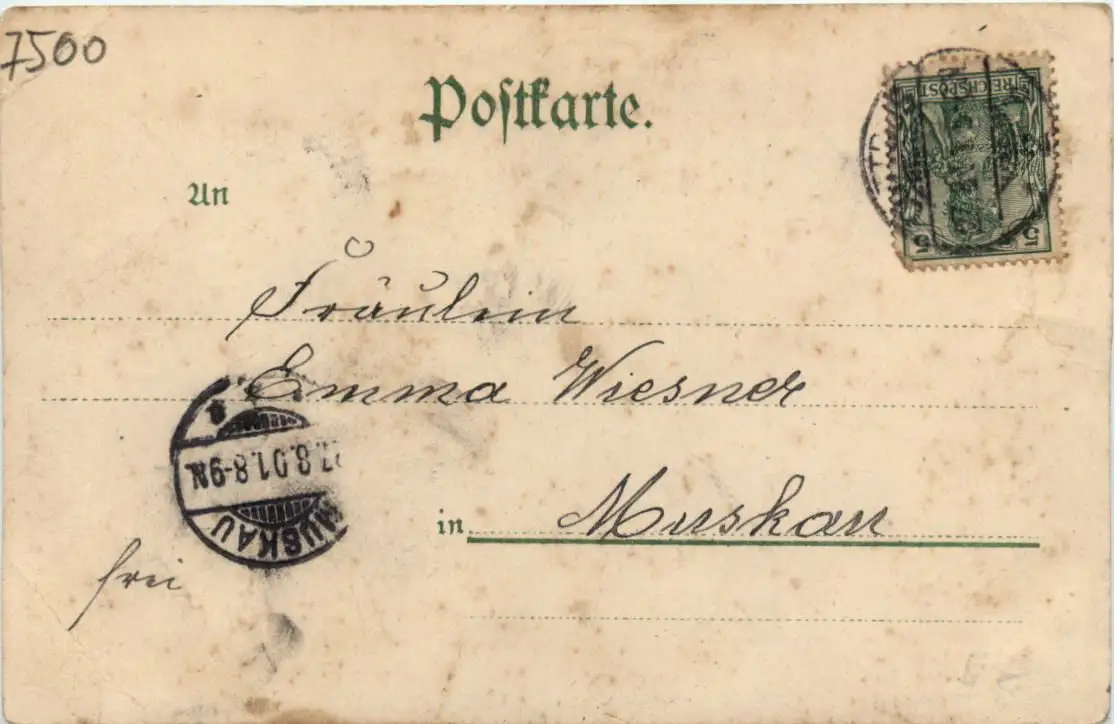 7500
Postkarte.
An
REICHSPOST
5 5
Fräulein
Emma Wiesner
27.8.01.8-9N.
MUSKAU
in Muskau
frei